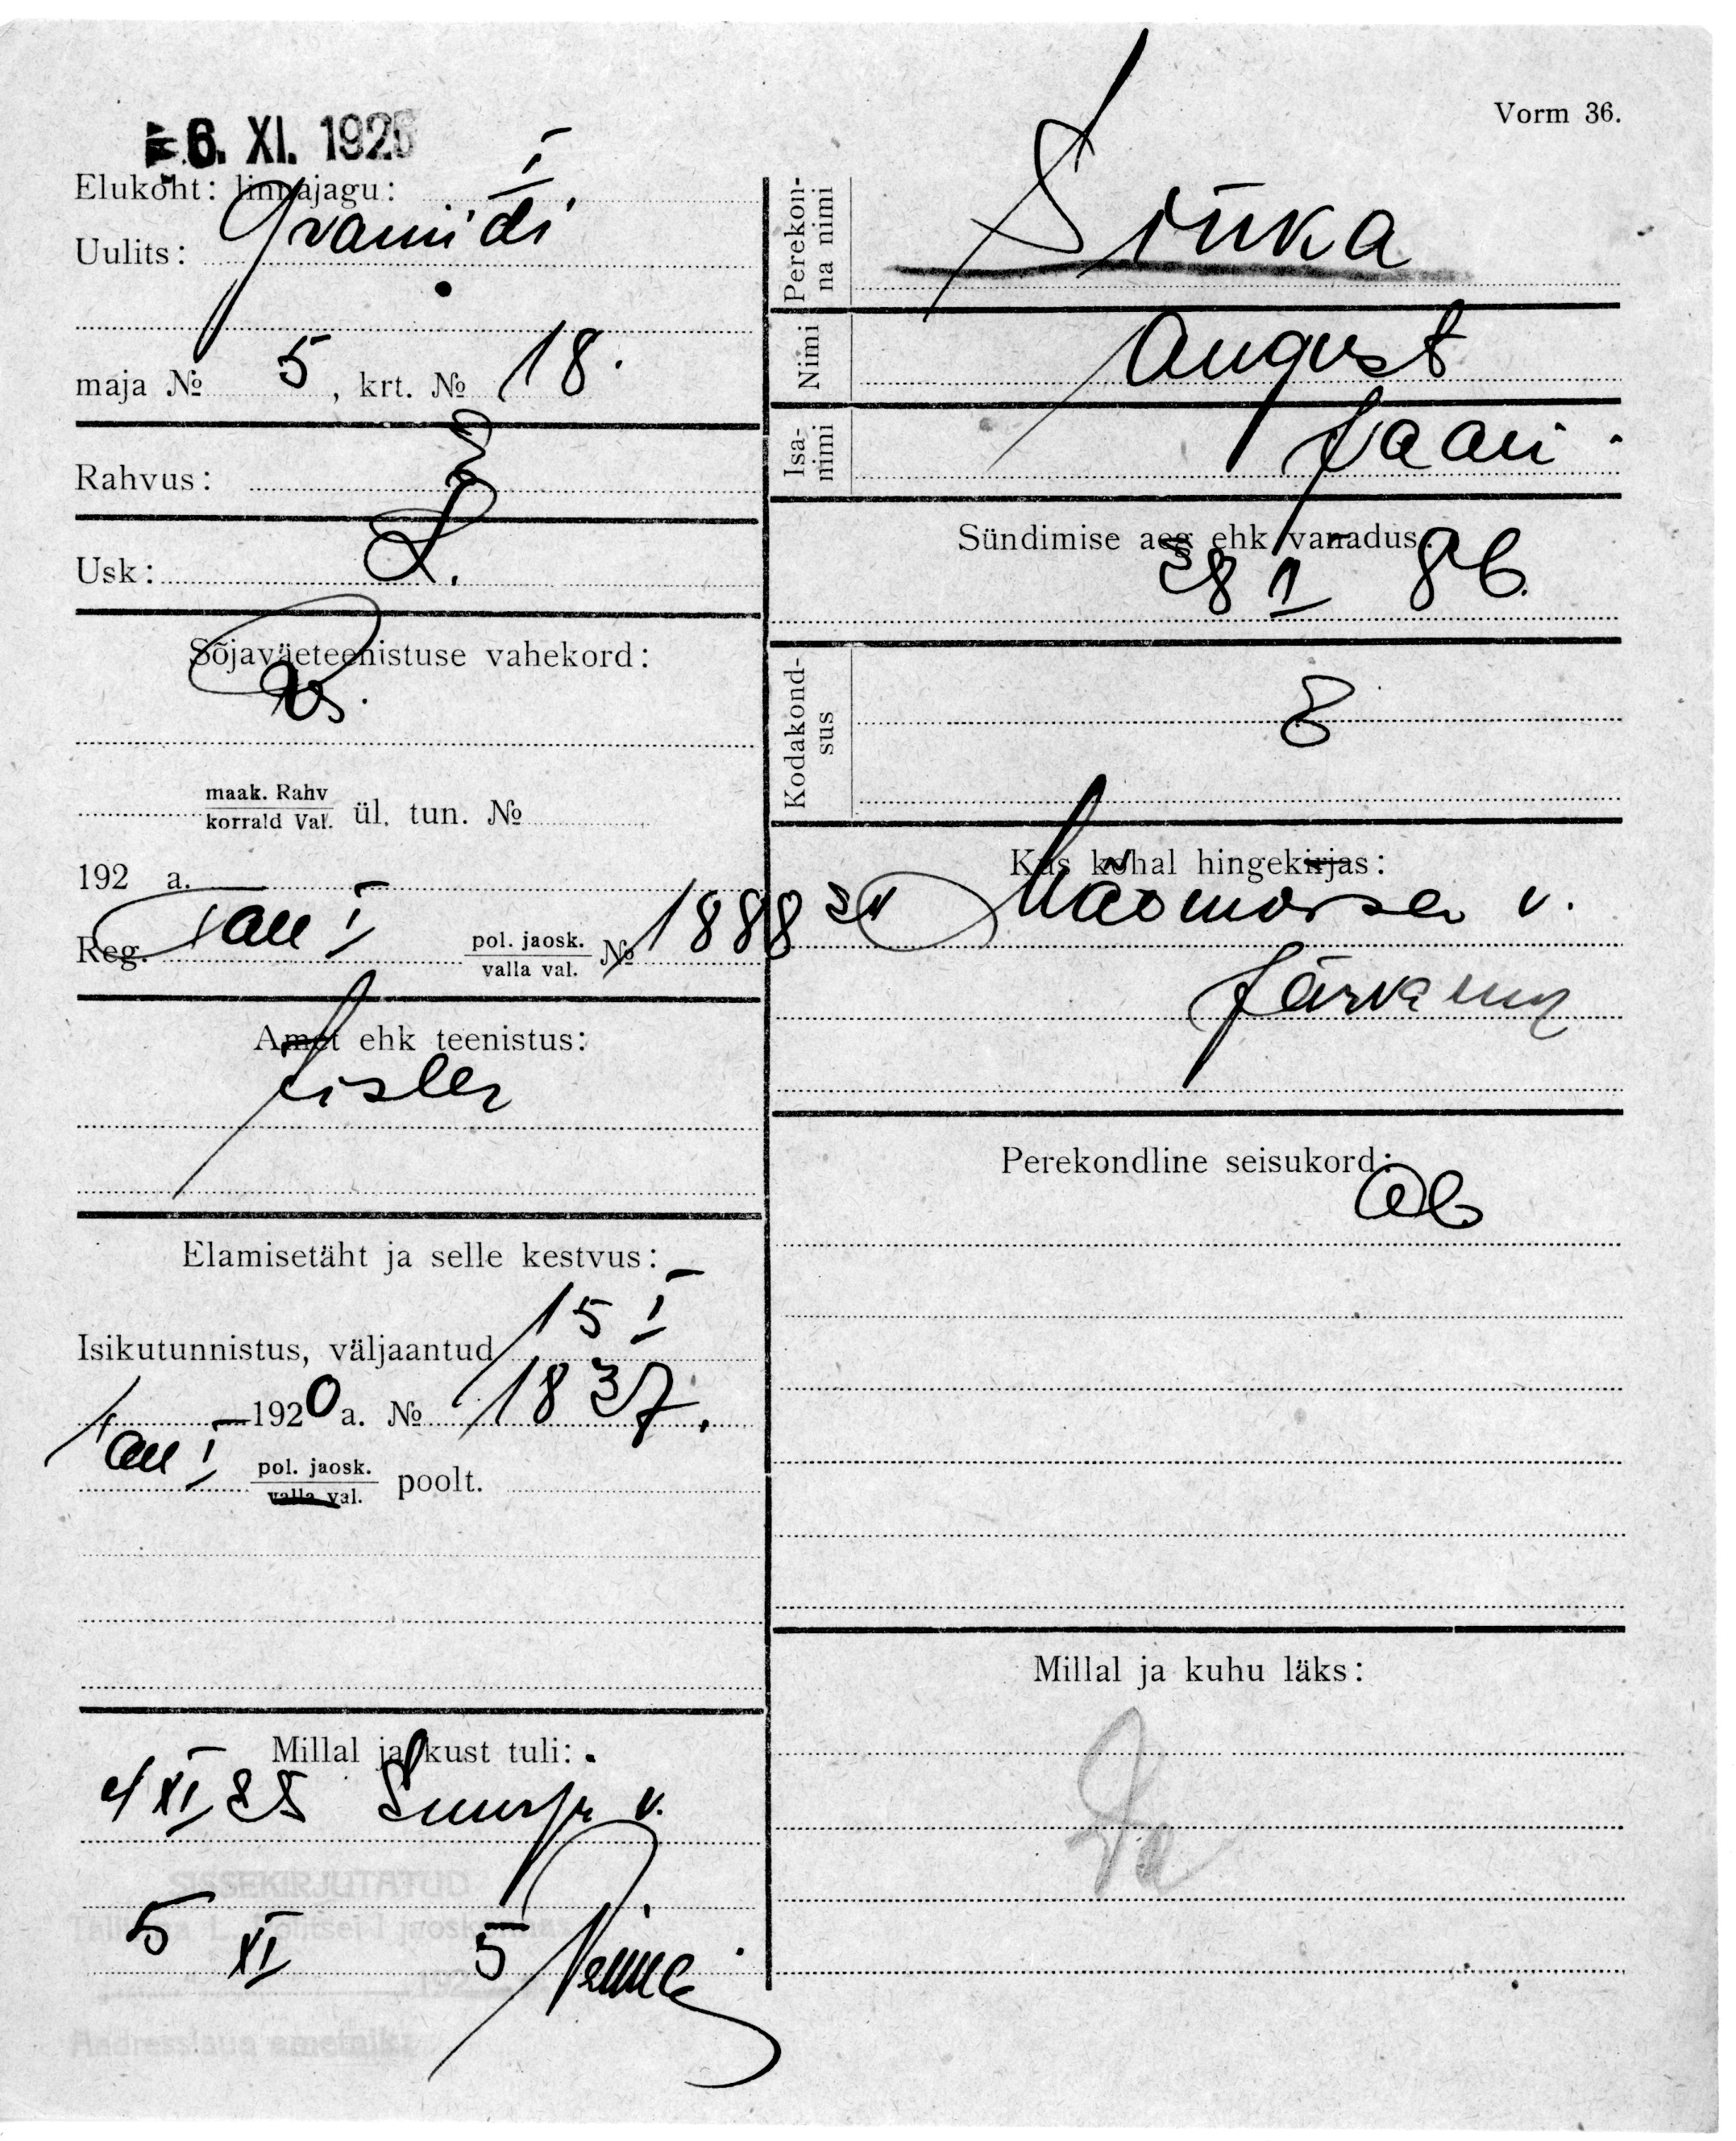 Vorm 36.
6. XI. 1925
Elukoht: linnajagu: I
Uulits: Graniidi
maja № 5, krt. № 18.
Rahvus: E
Usk: L.
Sõjaväeteenistuse vahekord:
maak. Rahv
korrald Val. ül. tun. №
192 a.
Reg. Tall I pol. jaosk. № 1888
valla val.
Amet ehk teenistus:
tisler
Elamisetäht ja selle kestvus:
Isikutunnistus, väljaantud 15 I
1920 a. № 1837.
Tall I pol. jaosk. poolt.
valla val.
Millal ja kust tuli:
4 XI 25 v.
SISSEKIRJUTATUD
Tallinna L. Politsei I jaoskonnas
5 XI 5
192
Aadresslaua ametnik
Perekonna nimi
Siika
Nimi August
Isanimi Jaan
Sündimise aeg ehk vanadus:
28 I 86.
Kodakondsus E
Kus kohal hingekirjas:
v.
Järva
Perekondline seisukord:
ab
Millal ja kuhu läks: